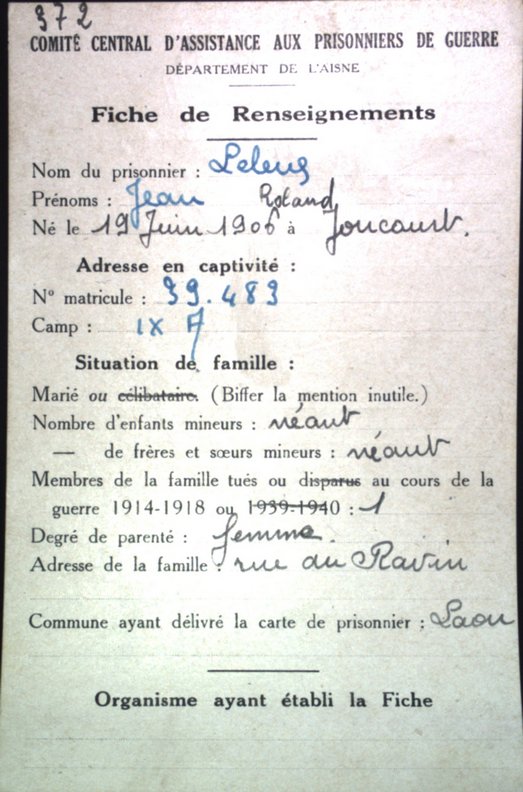 372
COMITÉ CENTRAL D'ASSISTANCE AUX PRISONNIERS DE GUERRE
DÉPARTEMENT DE L'AISNE
Fiche de Renseignements
Nom du prisonnier :
Prénoms : Jean Roland
Né le 19 Juin 1906 à Joncourt.
Adresse en captivité :
N° matricule : 39.483
Camp : IX A
Situation de famille :
Marié ou célibataire. (Biffer la mention inutile.)
Nombre d'enfants mineurs : néant
— de frères et sœurs mineurs : néant
Membres de la famille tués ou disparus au cours de la
guerre 1914-1918 ou 1939-1940 : 1
Degré de parenté : femme.
Adresse de la famille : rue du Ravin
Commune ayant délivré la carte de prisonnier : Laon
Organisme ayant établi la Fiche